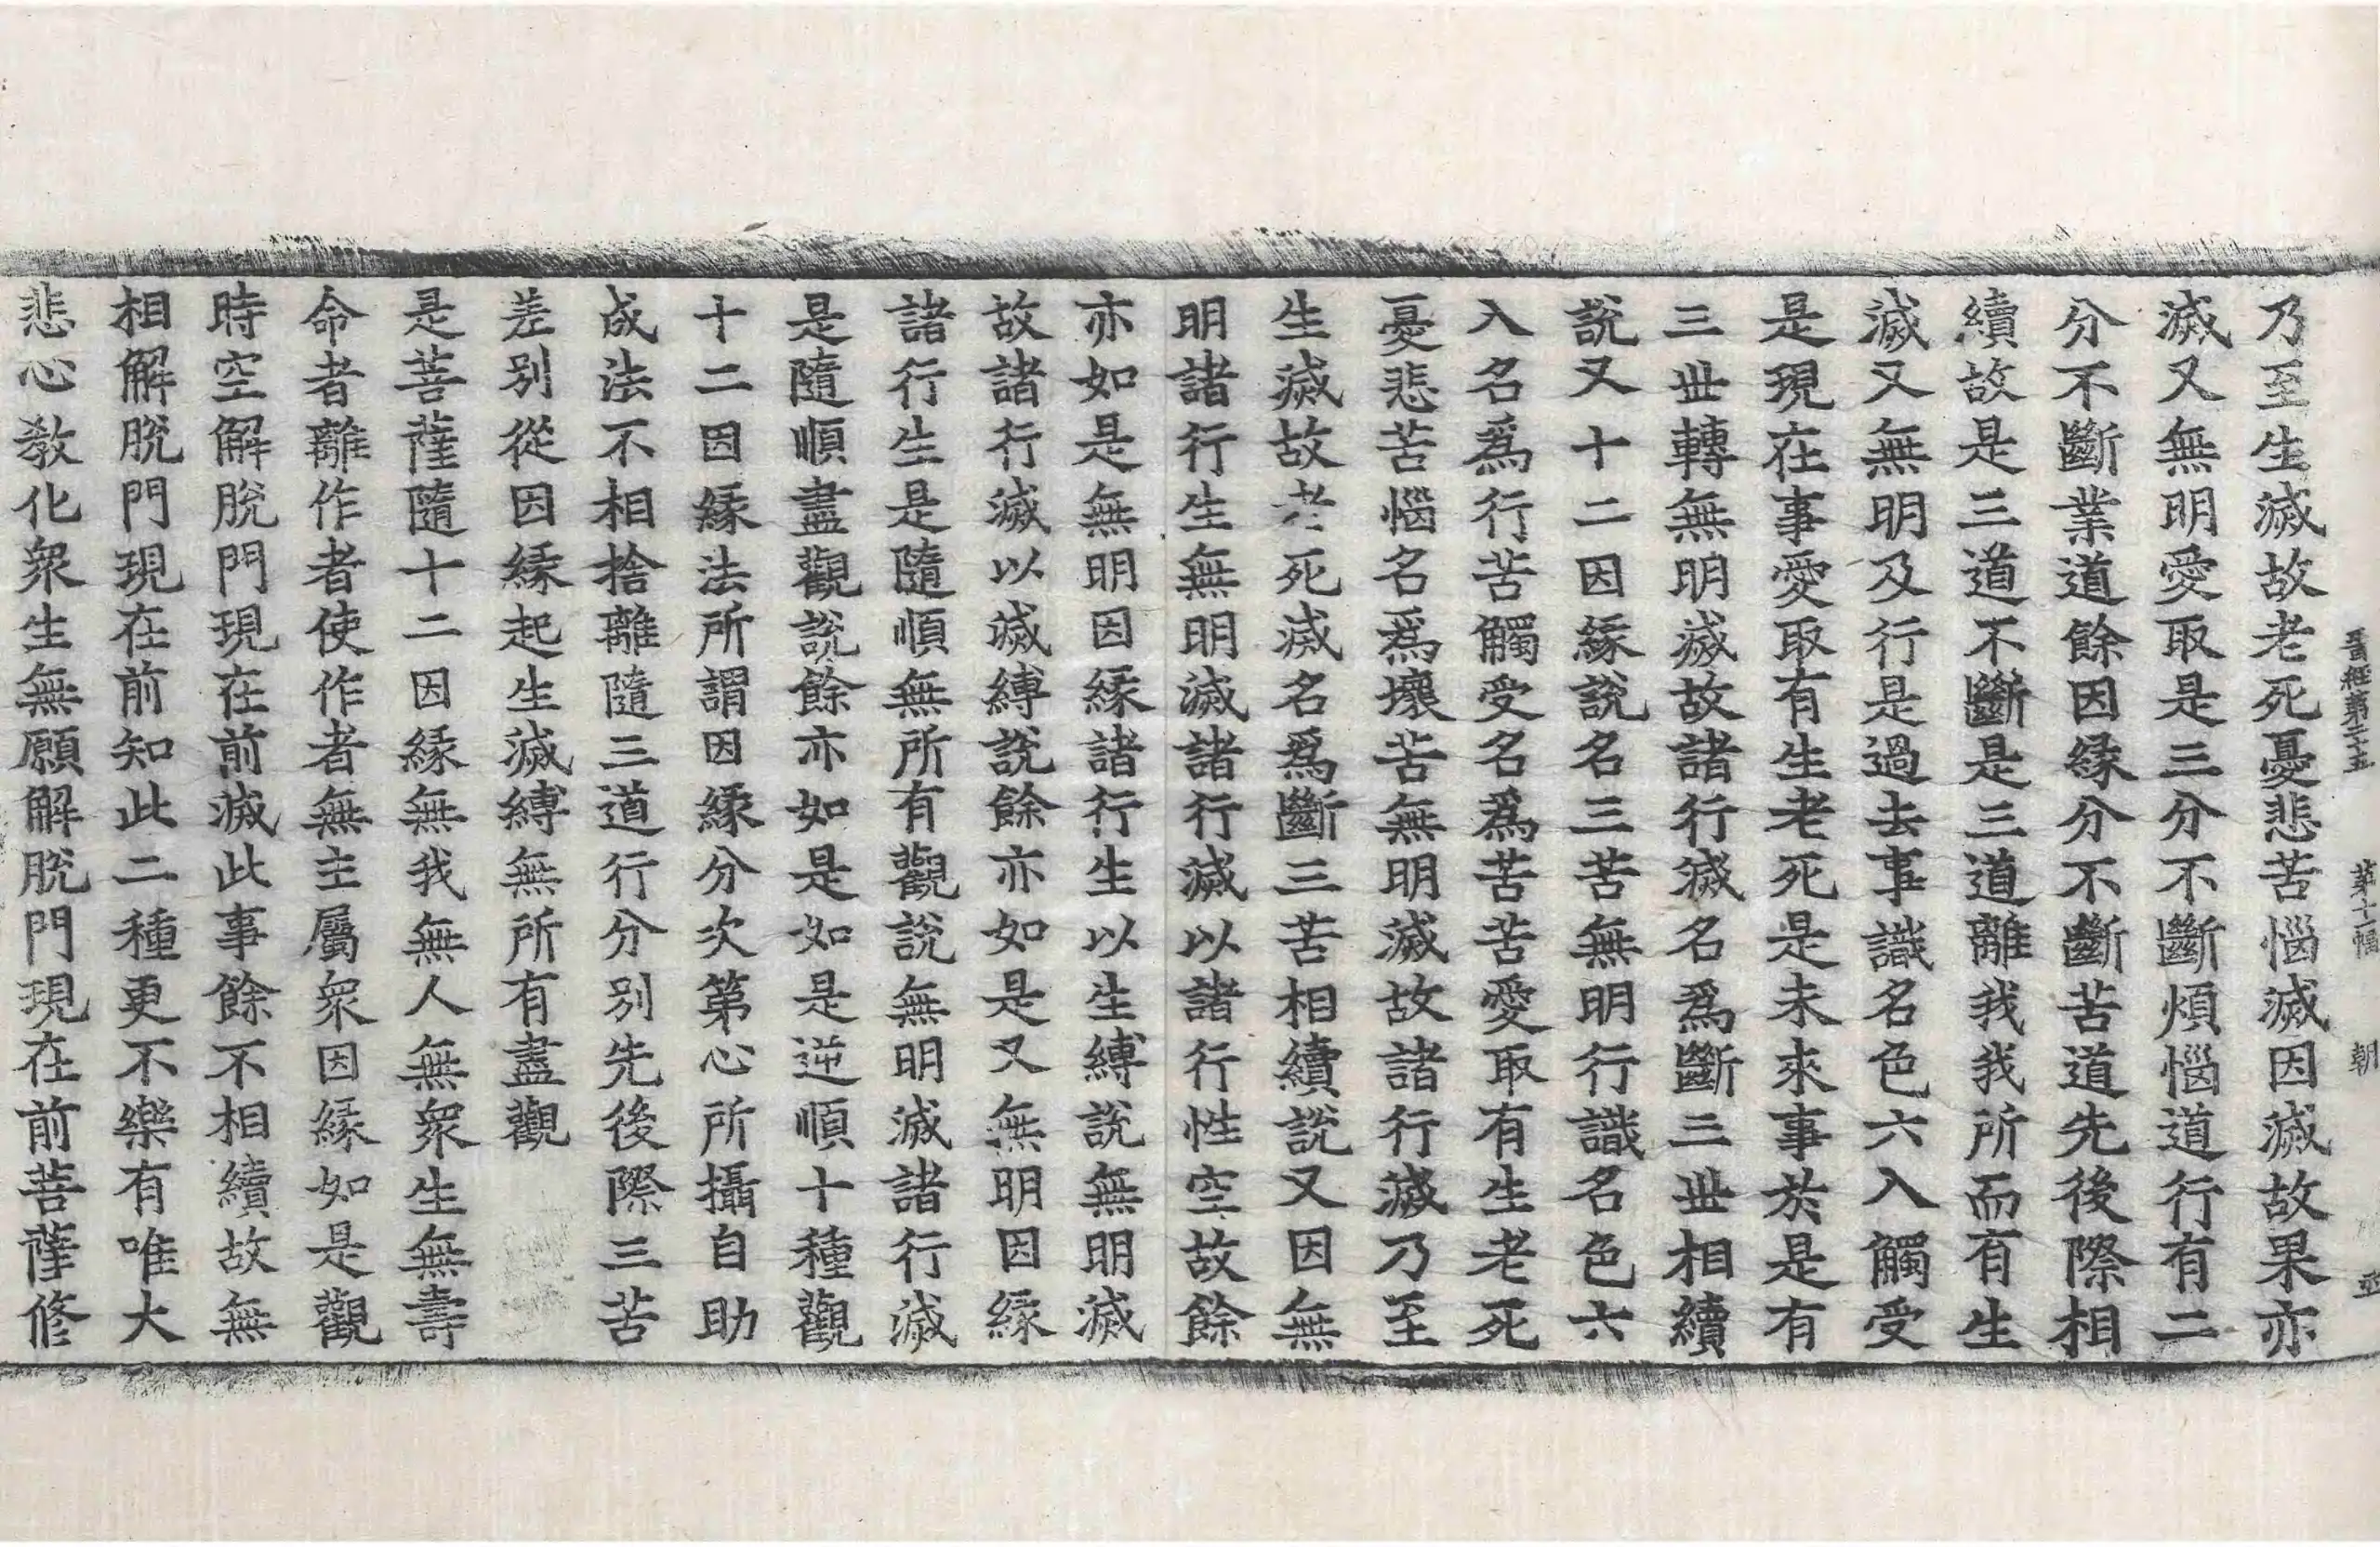 晉經第二十五 第十二幅 朝
乃至生滅故老死憂悲苦惱滅因滅故果亦
滅又無明愛取是三分不斷煩惱道行有二
分不斷業道餘因縁分不斷苦道先後際相
續故是三道不斷是三道離我我所而有生
滅又無明及行是過去事識名色六入觸受
是現在事愛取有生老死是未來事於是有
三世轉無明滅故諸行滅名爲斷三世相續
説又十二因縁說名三苦無明行識名色六
入名爲行苦觸受名爲苦苦愛取有生老死
憂悲苦惱名爲壞苦無明滅故諸行滅乃至
生滅故老死滅名爲斷三苦相續說又因無
明諸行生無明滅諸行滅以諸行性空故餘
亦如是無明因縁諸行生以生縛說無明滅
故諸行滅以滅縛說餘亦如是又無明因縁
諸行生是隨順無所有觀說無明滅諸行滅
是隨順盡觀說餘亦如是如是逆順十種觀
十二因縁法所謂因縁分次第心所攝自助
成法不相捨離隨三道行分別先後際三苦
差別從因縁起生滅縛無所有盡觀
是菩薩隨十二因縁無我無人無衆生無壽
命者離作者使作者無主屬衆因縁如是觀
時空解脫門現在前滅此事餘不相續故無
相解脫門現在前知此二種更不樂有唯大
悲心教化衆生無願解脫門現在前菩薩修